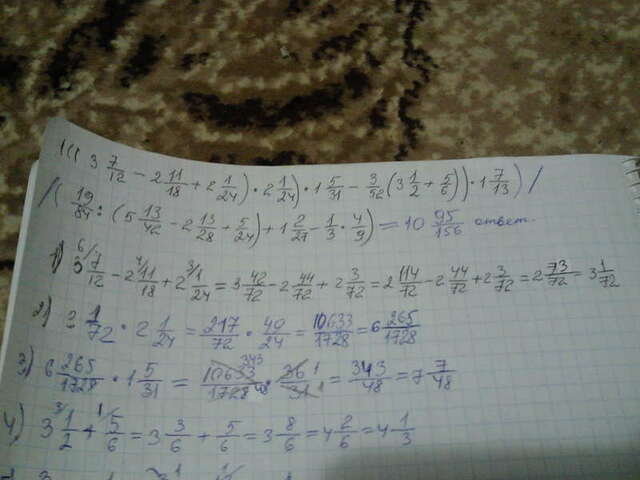 (((3 7/12 - 2 11/18 + 2 1/24) · 2 1/24) · 1 5/31 - 3/52 (3 1/2 + 5/6)) · 1 7/13) /
/ (19/84 : (5 13/42 - 2 13/28 + 5/24) + 1 2/27 - 1/3 · 4/9) = 10 95/156 ответ.
1) 3 7/12 - 2 11/18 + 2 1/24 = 3 42/72 - 2 44/72 + 2 3/72 = 2 114/72 - 2 44/72 + 2 3/72 = 2 73/72 = 3 1/72
2) 3 1/72 · 2 1/24 = 217/72 · 49/24 = 10633/1728 = 6 265/1728
3) 6 265/1728 · 1 5/31 = 10633/1728 · 36/31 = 343/48 = 7 7/48
4) 3 1/2 + 5/6 = 3 3/6 + 5/6 = 3 8/6 = 4 2/6 = 4 1/3